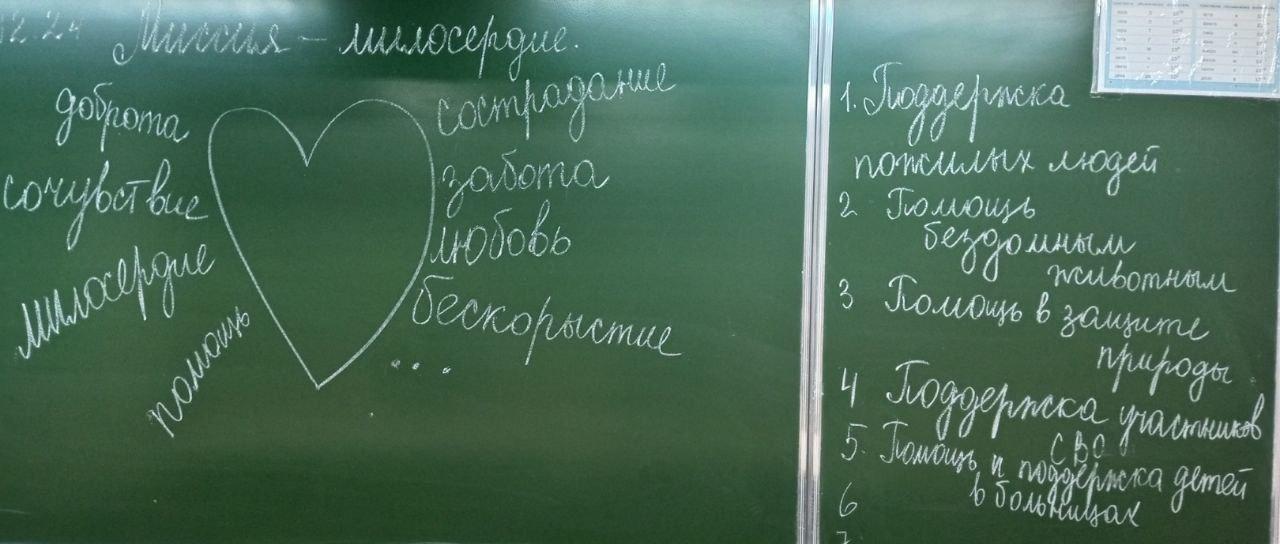 12.24 Миссия – милосердие.
доброта
сочувствие
милосердие
помощь
сострадание
забота
любовь
бескорыстие
...
1. Поддержка
пожилых людей
2 Помощь
бездомным
животным
3 Помощь в защите
природы
4 Поддержка участников
СВО
5. Помощь и поддержка детей
в больницах
6
7